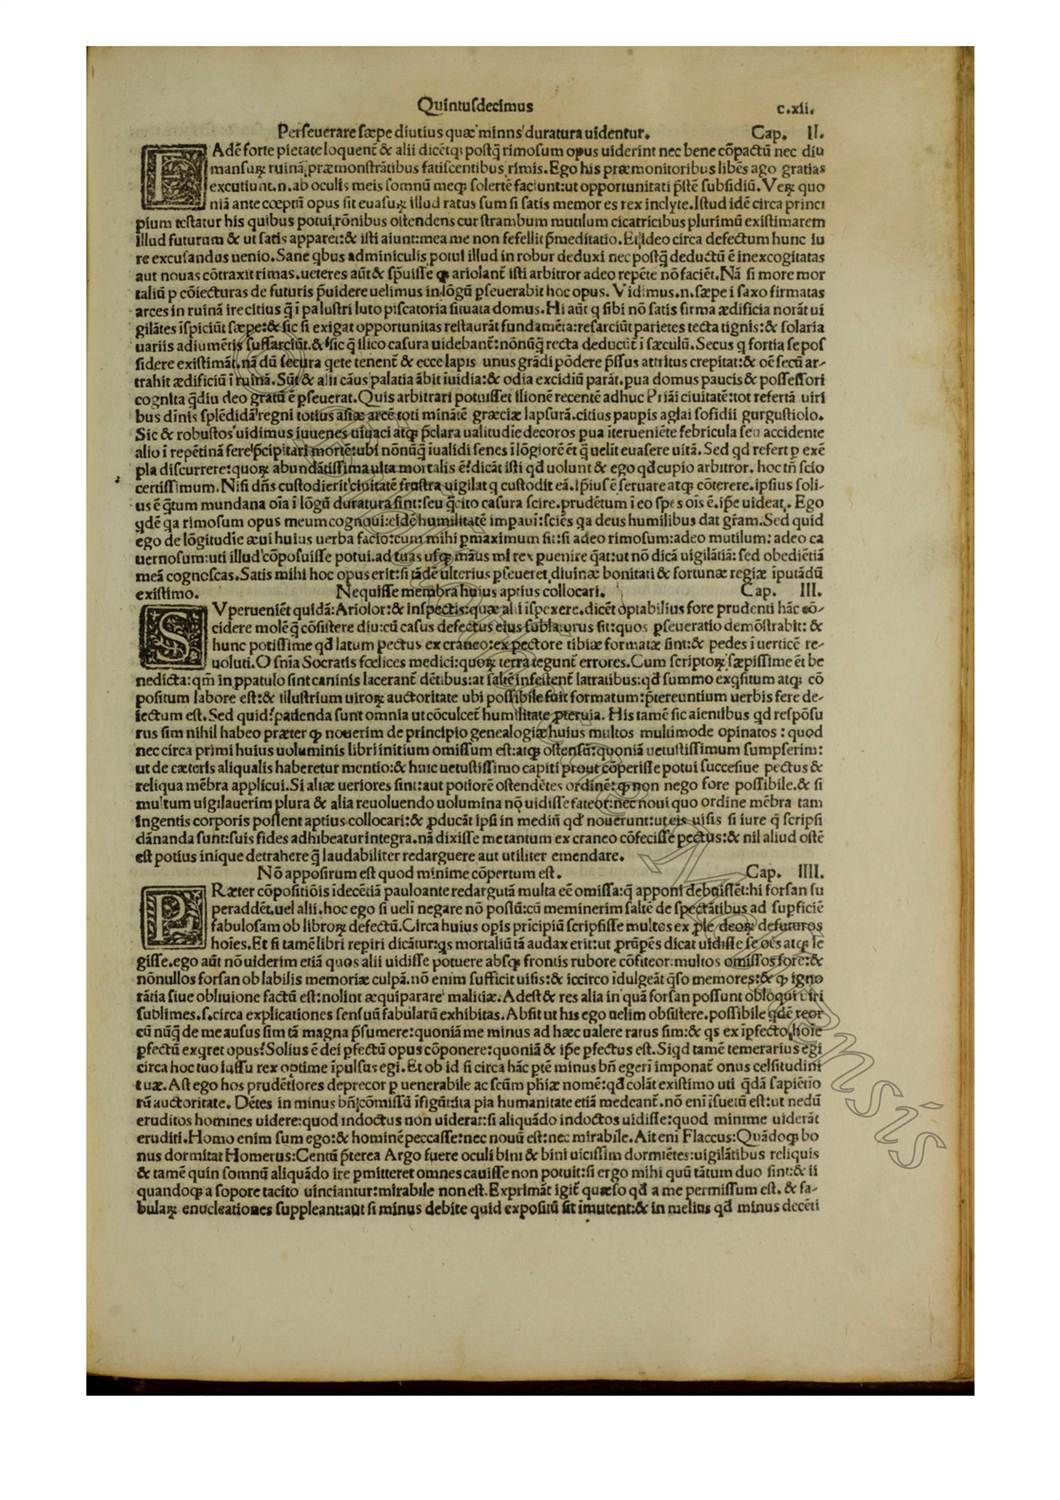 Quintusdecimus c.xii.
Perseuerare sæpe diutius quæ minns duratura uidentur. Cap. II.
EAdē forte pietate loquent̄ & alii dicētꝗ postq̄ rimosum opus uiderint nec bene cōpactū nec diu
mansuꝝ ruinā præmonstrātibus fatiscentibus rimis. Ego his præmonitoribus libēs ago gratias
excutiunt.n.ab oculis meis somnū meq; solertē faciunt:ut opportunitati p̄stē subsidiū. Veꝝ quo
niā ante cœptū opus sit euasuꝝ illud ratus sum si satis memor es rex inclyte. Istud idē circa princi
pium testatur his quibus potui rōnibus ostendens cur strambum mutulum cicatricibus plurimū existimarem
illud futurum & ut satis apparet:& isti aiunt:mea me non fefellit p̄meditatio. Et ideo circa defectum hunc iu
re excusandus uenio. Sane qbus adminiculis potui illud in robur deduxi nec postq̄ deductū ē inexcogitatas
aut nouas cōtraxit rimas. ueteres aūt & sp̄uisse ꝙ ariolant̄ isti arbitror adeo repēte nō faciēt. Nā si more mor
taliū p cōiecturas de futuris p̄uidere uelimus in lōgū pseuerabit hoc opus. Vidimus.n.sæpe i saxo firmatas
arces in ruinā ire citius q̄ ī palustri luto piscatoria situata domus. Hi aūt q sibi nō satis firma ædificia norāt ui
gilātes ispiciūt sæpe:& sic si exigat opportunitas restaurāt fundamēta:resarciūt parietes tecta tignis:& solaria
uariis adiumētis suffarciūt.& sic q̄ ilico casura uidebant̄:nōnūq̄ recta deducūt̄ ī sæculū. Secus q fortia se pos
sidere existimāt.nā dū secura qete tenent̄ & ecce lapis unus grādi pōdere p̄ssus attritus crepitat:& oē secū ar-
trahit ædificiū ī ruinā. Sūt & alii cāus palatia ābit iuidia:& odia excidiū parāt.pua domus paucis & possessori
cognita q̄diu deo gratū ē pseuerat. Quis arbitrari potuisset ilionē recentē adhuc Priāi ciuitatē:tot refertā uiri
bus diuis splēdidā regni totius asiæ arcē toti minātē græciæ lapsurā.citius paupis aglai sofidii gurgustiolo.
Sic & robustos uidimus iuuenes uiuaci atq; p̄clara ualitudie decoros pua iterueniēte febricula seu accidente
alio i repētinā fere p̄cipitari mortē:ubi nōnūq̄ iualidi senes i lōgiorē ēt q̄ uelit euasere uitā. Sed qd refert p exē
pla discurrere:quoꝝ abundātissima ulta mortalis ē? dicāt isti qd uolunt & ego qd cupio arbitror. hoc tn̄ scio
certissimum. Nisi dn̄s custodierit ciuitatē frustra uigilat q custodit eā. Ipius ē seruare atq; cōterere.ipsius soli-
us ē q̄tum mundana oīa ī lōgū duratura sint:seu q̄cito casura scire.prudētum i eo spes ois ē.ipe uideat. Ego
qdē qa rimosum opus meum cognoui:eidē humilitatē impaui:sciēs qa deus humilibus dat gr̄am. Sed quid
ego de lōgitudie æui huius uerba facio:cum mihi pmaximum sit:si adeo rimosum:adeo mutilum: adeo ca
uernosum:uti illud cōposuisse potui.ad tuas usq; māus mi rex puenire q̄at:ut nō dicā uigilātiā: sed obediētiā
meā cognoscas. Satis mihi hoc opus erit:si tādē ulterius pseueret diuinæ bonitati & fortunæ regiæ iputādū
existimo. Nequisse membra huius aptius collocari. Cap. III.
SVperueniēt quidā: Ariolor:& inspectis:quæ alii ispexere.dicēt optabilius fore prudenti hāc cō-
cidere molē q̄ cōsistere diu:cū casus defectus eius sublaturus sit:quos pseueratio demōstrabit: &
hunc potissime qd latum pectus ex craneo:ex pectore tibiæ formatæ sint:& pedes i uerticē re-
uoluti. O sn̄ia Socratis fœlices medici:quoꝝ terra tegunt̄ errores. Cum scriptoꝝ sæpissime ēt be
nedicta:qm̄ in ppatulo sint caninis lacerant̄ dētibus:at saltē infestent̄ latratibus:qd summo exqsitum atq; cō
positum labore est:& illustrium uiroꝝ auctoritate ubi possibile fuit formatum:p̄tereuntium uerbis fere de-
iectum est. Sed quid? padenda sunt omnia ut cōculcet̄ humilitate pteruia. His tamē sic aientibus qd respōsu
rus sim nihil habeo præter ꝙ nouerim de principio genealogiæ huius multos multimode opinatos : quod
nec circa primi huius uoluminis libri initium omissum est:atq; ostensū:quoniā uetustissimum sumpserim:
ut de cæteris aliqualis haberetur mentio:& huic uetustissimo capiti prout cōperisse potui succesiue pectus &
reliqua mēbra applicui. Si aliæ ueriores sint:aut potiorē ostendētes ordinē:ꝙ non nego fore possibile.& si
multum uigilauerim plura & alia reuoluendo uolumina nō uidisse fateor:nec noui quo ordine mēbra tam
ingentis corporis possent aptius collocari:& pducāt ipsi in mediū qd nouerunt:ut eis uisis si iure q̄ scripsi
dānanda sunt:suis fides adhibeatur integra.nā dixisse me tantum ex craneo cōfecisse pectus:& nil aliud ostē
est potius inique detrahere q̄ laudabiliter redarguere aut utiliter emendare.
Nō appositum est quod minime cōpertum est. Cap. IIII.
PRæter cōpositiōis idecētiā pauloante redargutā multa eē omissa:q̄ apponi debuissēt:hi forsan su
peraddēt.uel alii.hoc ego si ueli negare nō possū:cū meminerim saltē de spectātibus ad supficiē
fabulosam ob libroꝝ defectū. Circa huius opis principiū scripsisse multes ex ple deoꝝ defuturos
hoīes. Et si tamē libri repiri dicātur:qs mortaliū tā audax erit:ut prūpēs dicat uidisse se oēs atq; le
gisse.ego aūt nō uiderim etiā quos alii uidisse potuere absq; frontis rubore cōfiteor:multos omissos fore:&
nōnullos forsan ob labilis memoriæ culpā.nō enim sufficit uisis:& iccirco idulgeāt q̄so memores:& ꝙ igno
rātia siue obliuione factū est:nolint æquiparare malitiæ. Adest & res alia in quā forsan possunt obloqui uiri
sublimes.s.circa explicationes sensuū fabularū exhibitas. Absit ut his ego uelim obsistere.possibile q̄dē reor
cū nūq̄ de me ausus sim tā magna p̄sumere:quoniā me minus ad hæc ualere ratus sim:& qs ex īpfecto hoīe
pfectū exqret opus? Solius ē dei pfectū opus cōponere:quoniā & ipe pfectus est. Siqd tamē temerarius egi
circa hoc tuo iussu rex optime īpulsus egi. Et ob id si circa hāc ptē minus bn̄ egeri imponat̄ onus celsitudini
tuæ. Ast ego hos prudētiores deprecor p uenerabile ac scūm phiæ nomē:qd colāt existimo uti q̄dā sapiētio
rū auctoritate. Dētes in minus bn̄ cōmissū īsigāt:ita pia humanitate etiā medeant̄.nō eni īsuetū est:ut nedū
eruditos homines uidere:quod indoctus non uiderat:si aliquādo indoctos uidisse:quod minime uiderāt
eruditi. Homo enim sum ego:& hominē peccasse:nec nouū est:nec mirabile. Ait eni Flaccus:Quādoq; bo
nus dormitat Homerus:Centū p̄terea Argo fuere oculi bini & bini uicissim dormiētes:uigilātibus reliquis
& tamē quin somnū aliquādo ire pmitteret omnes cauisse non potuit:si ergo mihi quū tātum duo sint:& ii
quandoq; a sopore tacito uinciantur:mirabile non est. Exprimāt igit̄ quæso qd a me permissum est. & fa-
bulaꝝ enucleationes suppleant:aut si minus debite quid expositū sit imutent:& in melius qd minus decēti